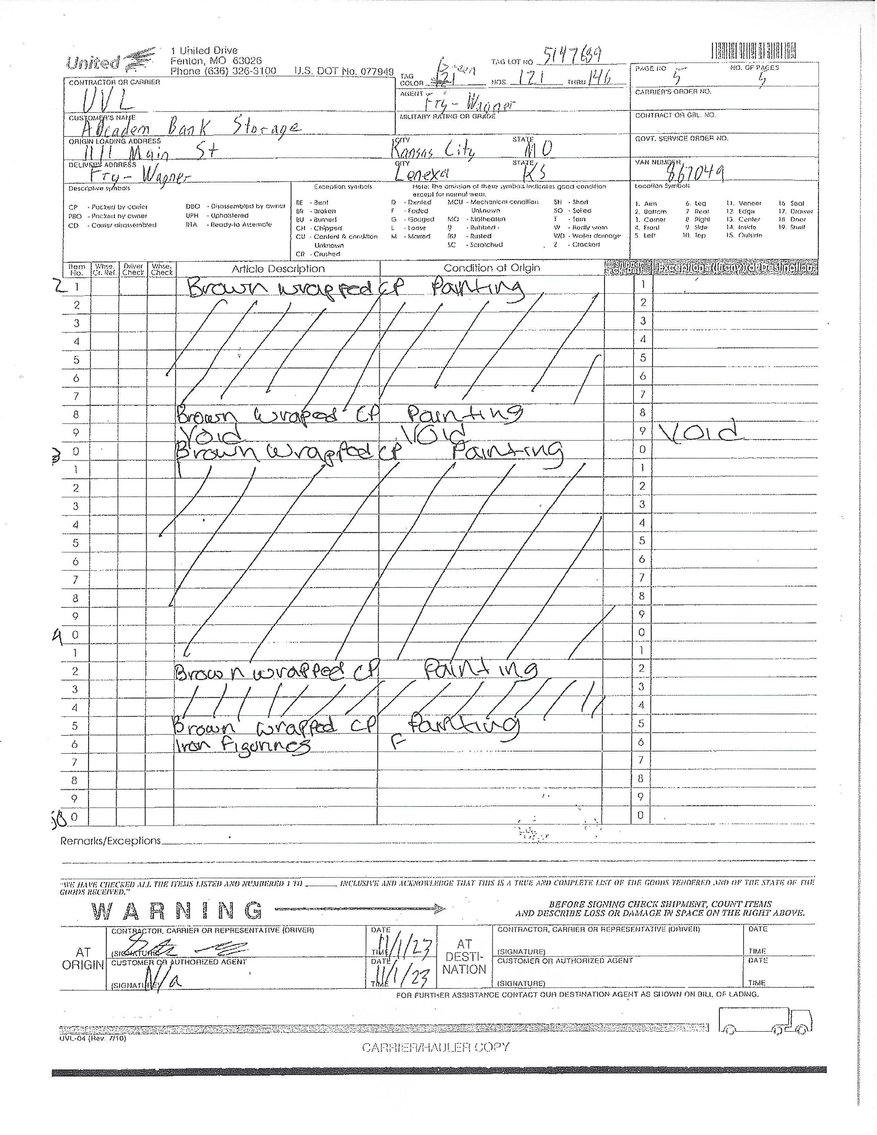 United
1 United Drive
Fenton, MO 63026
Phone (636) 326-3100 U.S. DOT No. 077949
TAG COLOR 121
TAG LOT NO 5147689
NOS. 121 THRU 146
PAGE NO 5
NO. OF PAGES 5
CONTRACTOR OR CARRIER
UVL
AGENT
Fry-Wagner
CARRIER'S ORDER NO.
CUSTOMER'S NAME
Academ Bank Storage
MILITARY RATING OR GRADE
CONTRACT OR GBL NO.
ORIGIN LOADING ADDRESS
1111 Main St
CITY
Kansas City
STATE
MO
GOVT. SERVICE ORDER NO.
DELIVERY ADDRESS
Fry-Wagner
CITY
Lenexa
STATE
KS
VAN NUMBER
867049
Descriptive symbols
CP - Packed by carrier
PBO - Packed by owner
CD - Carrier disassembled
DBO - Disassembled by owner
UPH - Upholstered
RTA - Ready-to Assemble
Exception symbols
Note: The omission of these symbols indicates good condition except for normal wear.
BE - Bent
BR - Broken
BU - Burned
CH - Chipped
CU - Content & condition Unknown
CR - Crushed
D - Dented
F - Faded
G - Gouged
L - Loose
M - Marred
MCU - Mechanical condition Unknown
MO - Motheaten
R - Rubbed
RU - Rusted
SC - Scratched
SH - Short
SO - Soiled
T - Torn
W - Badly worn
WD - Water damage
Z - Cracked
Location Symbols
1. Arm
2. Bottom
3. Corner
4. Front
5. Left
6. Leg
7. Rear
8. Right
9. Side
10. Top
11. Veneer
12. Edge
13. Center
14. Inside
15. Outside
16. Seat
17. Drawer
18. Door
19. Shelf
Item No. Whse. Cr. Ref. Driver Check Whse. Check Article Description Condition at Origin Exceptions (if any) at Destination
2 1 Brown wrapped CP Painting 1
2 2
3 3
4 4
5 5
6 6
7 7
8 Brown wraped CP Painting 8
9 Void Void 9 Void
3 0 Brown wrapped CP Painting 0
1 1
2 2
3 3
4 4
5 5
6 6
7 7
8 8
9 9
4 0 0
1 1
2 Brown wrapped CP Painting 2
3 3
4 4
5 Brown wrapped CP Painting 5
6 Iron Figurines F 6
7 7
8 8
9 9
0 0
Remarks/Exceptions
"WE HAVE CHECKED ALL THE ITEMS LISTED AND NUMBERED 1 TO ______ INCLUSIVE AND ACKNOWLEDGE THAT THIS IS A TRUE AND COMPLETE LIST OF THE GOODS TENDERED AND OF THE STATE OF THE GOODS RECEIVED."
WARNING
BEFORE SIGNING CHECK SHIPMENT, COUNT ITEMS
AND DESCRIBE LOSS OR DAMAGE IN SPACE ON THE RIGHT ABOVE.
AT ORIGIN
CONTRACTOR, CARRIER OR REPRESENTATIVE (DRIVER)
(SIGNATURE)
DATE
11/1/23
TIME
CUSTOMER OR AUTHORIZED AGENT
(SIGNATURE) N/a
DATE
11/1/23
TIME
AT DESTI-NATION
CONTRACTOR, CARRIER OR REPRESENTATIVE (DRIVER)
(SIGNATURE)
DATE
TIME
CUSTOMER OR AUTHORIZED AGENT
(SIGNATURE)
DATE
TIME
FOR FURTHER ASSISTANCE CONTACT OUR DESTINATION AGENT AS SHOWN ON BILL OF LADING.
UVL-04 (Rev. 7/10)
CARRIER/HAULER COPY